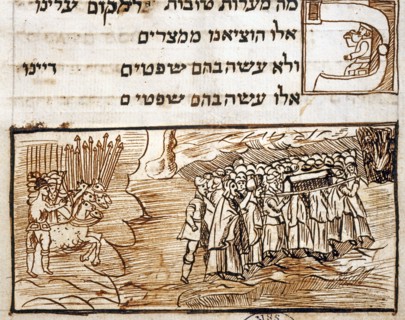 מה מעלות טובות למקום עלינו
אלו הוציאנו ממצרים
ולא עשה בהם שפטים דיינו
אלו עשה בהם שפטים